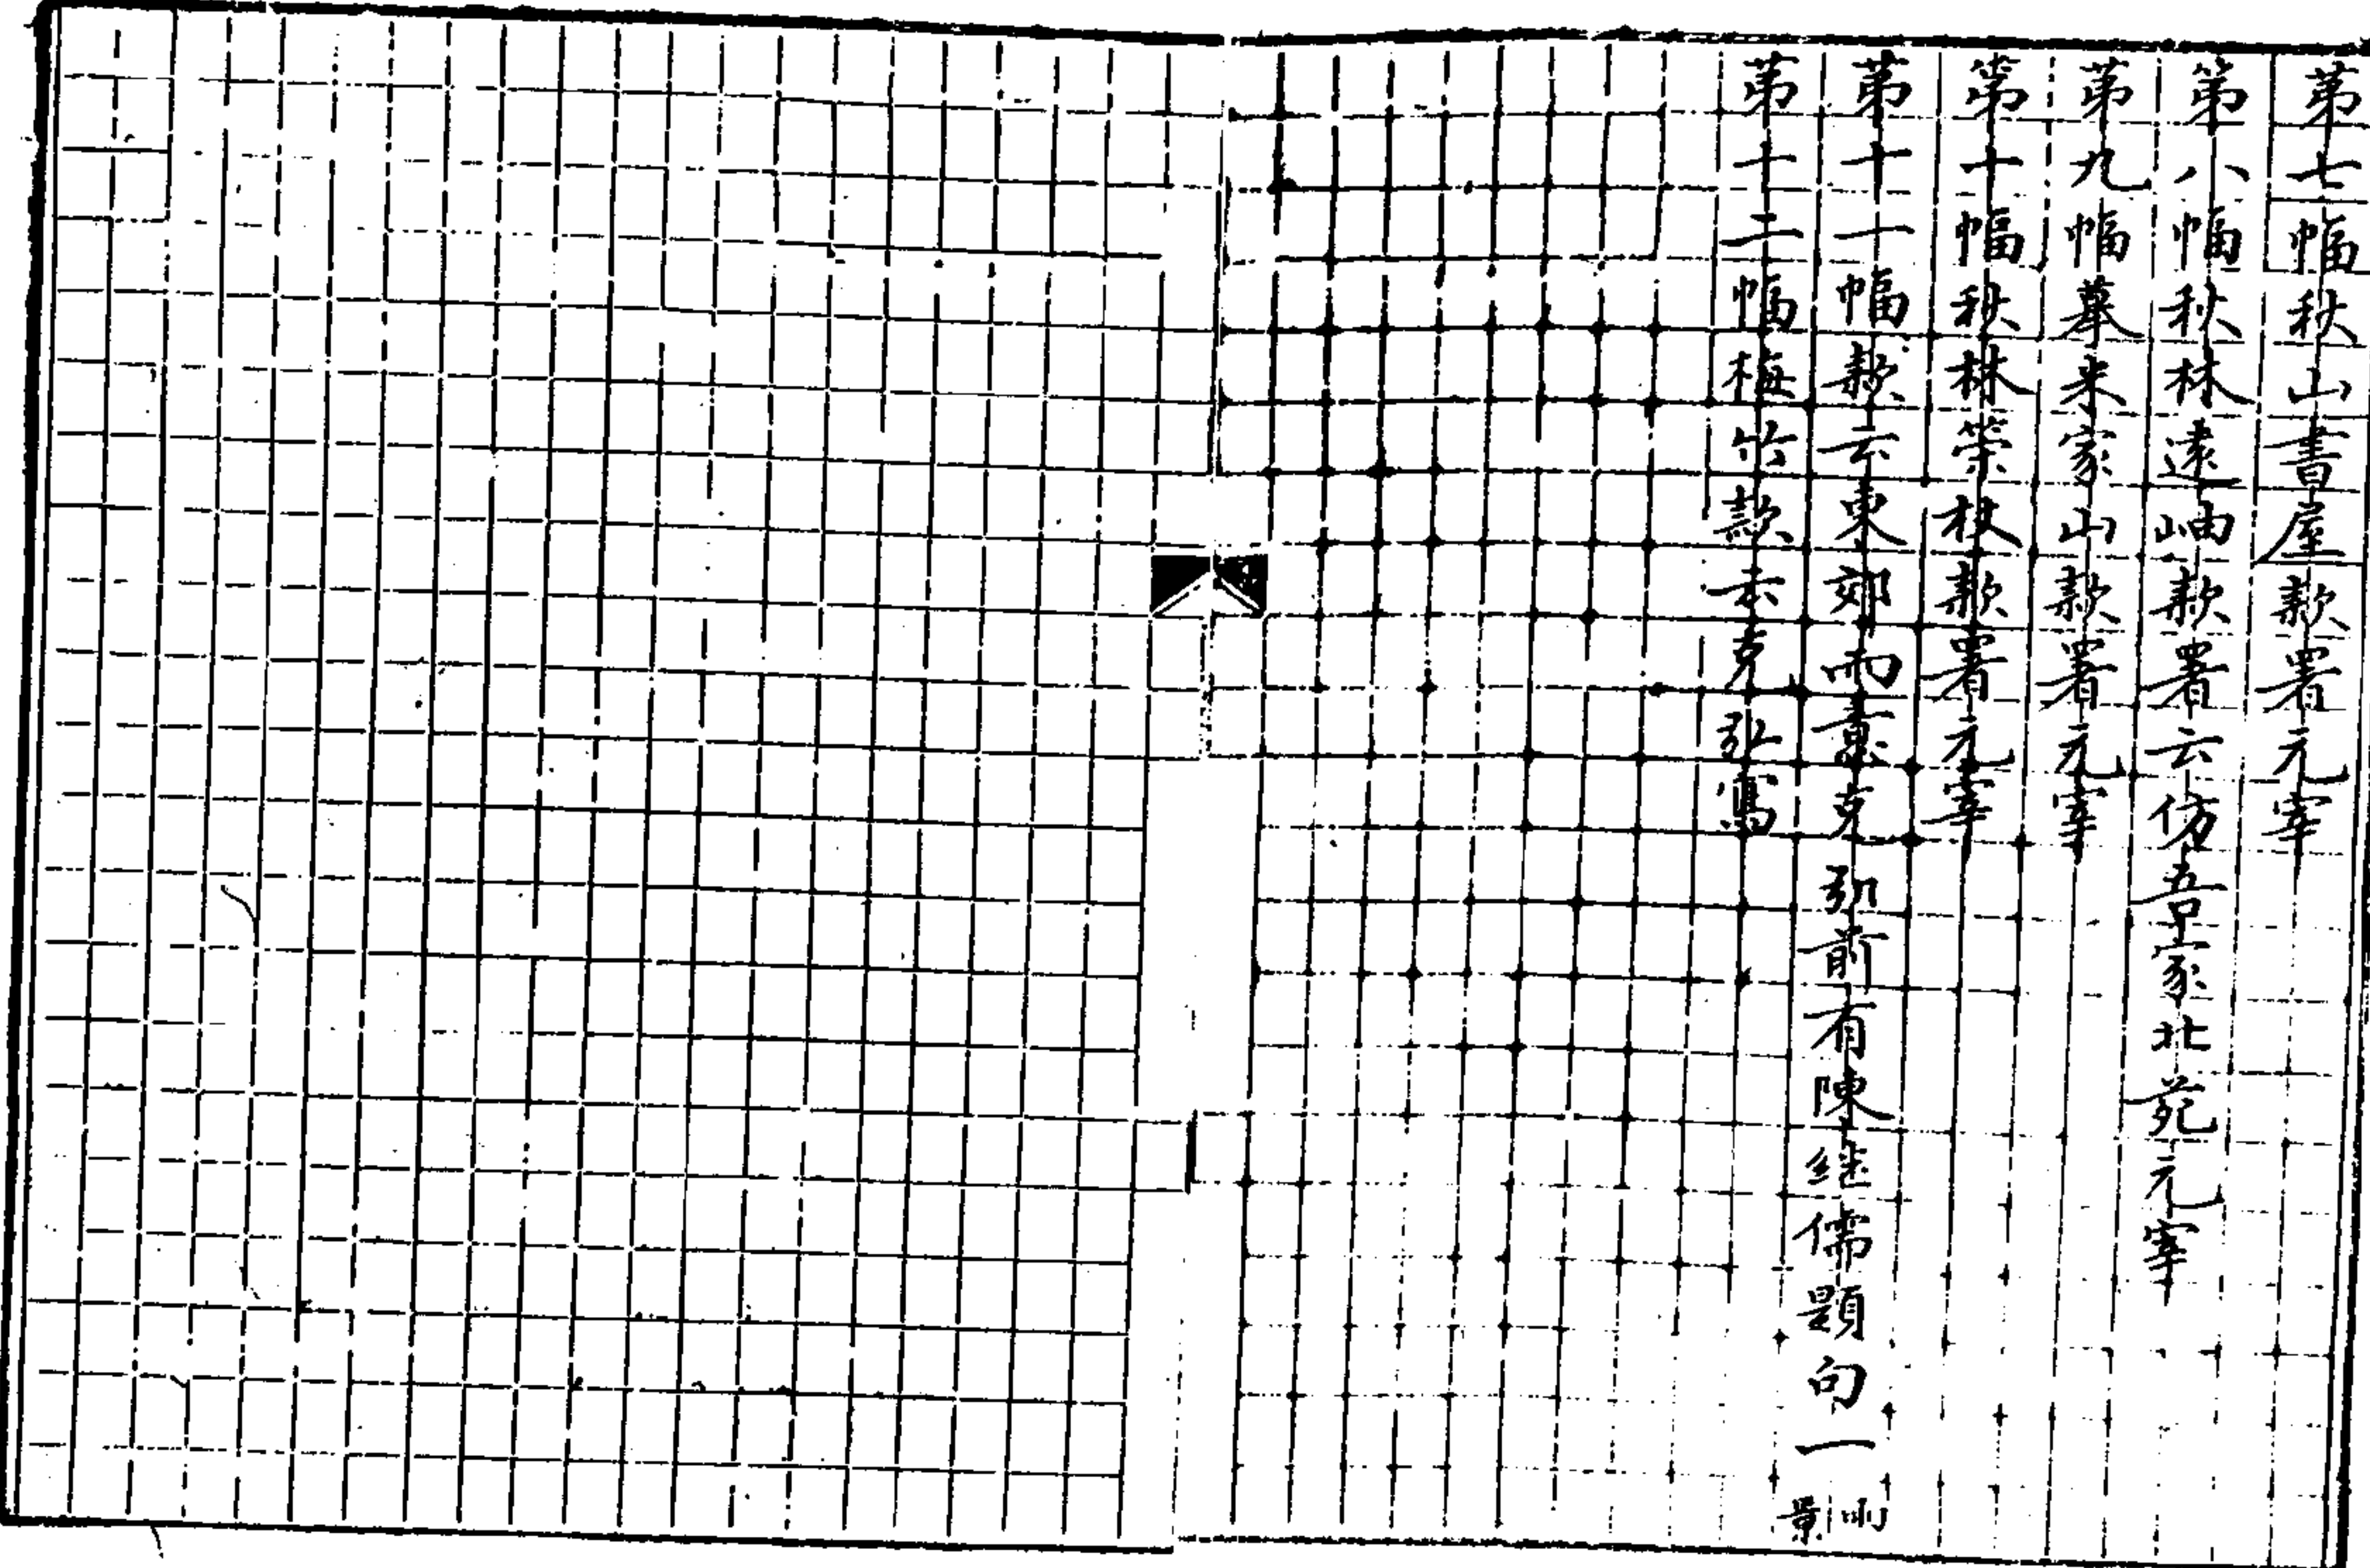 第七幅秋山書屋款署元宰
第八幅秋林遠岫款署云仿吾家北苑元宰
第九幅摹米家山款署元宰
第十幅秋林策杖款署元宰
第十一幅款云東郊雨意克弘前有陳继儒題句一
雨景
第十二幅梅竹款云克弘寫